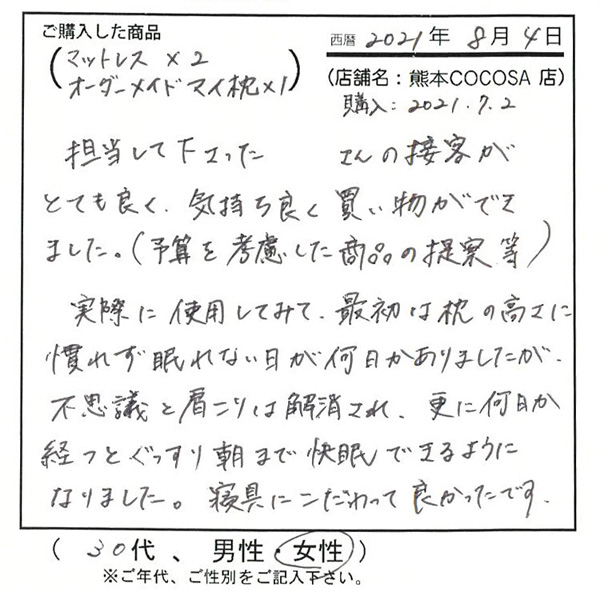 ご購入した商品
西暦 2021年 8月 4日
(マットレス ×2
オーダーメイド マイ枕×1)
(店舗名：熊本COCOSA 店)
購入：2021.7.2
担当して下さった さんの接客が
とても良く、気持ち良く買い物ができ
ました。(予算を考慮した商品の提案等)
実際に使用してみて、最初は枕の高さに
慣れず眠れない日が何日かありましたが、
不思議と肩こりは解消され、更に何日か
経つとぐっすり朝まで快眠できるように
なりました。寝具にこだわって良かったです.
( 30代 、 男性・女性 )
※ご年代、ご性別をご記入下さい。